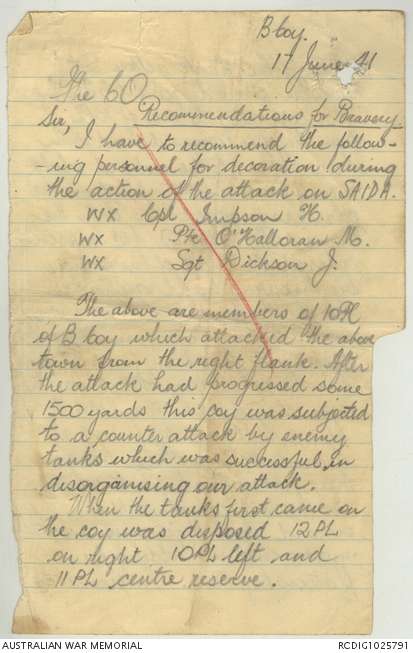 B Coy.
17 June 41
The CO
Recommendations for Bravery
Sir,
I have to recommend the follow-
-ing personnel for decoration during
the action of the attack on SAIDA.
WX Cpl Impson H.
WX Pte O'Halloran M.
WX Sgt Dickson J.
The above are members of 10 Pl
of B Coy which attacked the above
town from the right flank. After
the attack had progressed some
1500 yards this coy was subjected
to a counter attack by enemy
tanks which was successful in
disorganising our attack.
When the tanks first came on
the coy was disposed 12 PL
on right 10 PL left and
11 PL centre reserve.
AUSTRALIAN WAR MEMORIAL
RCDIG1025791